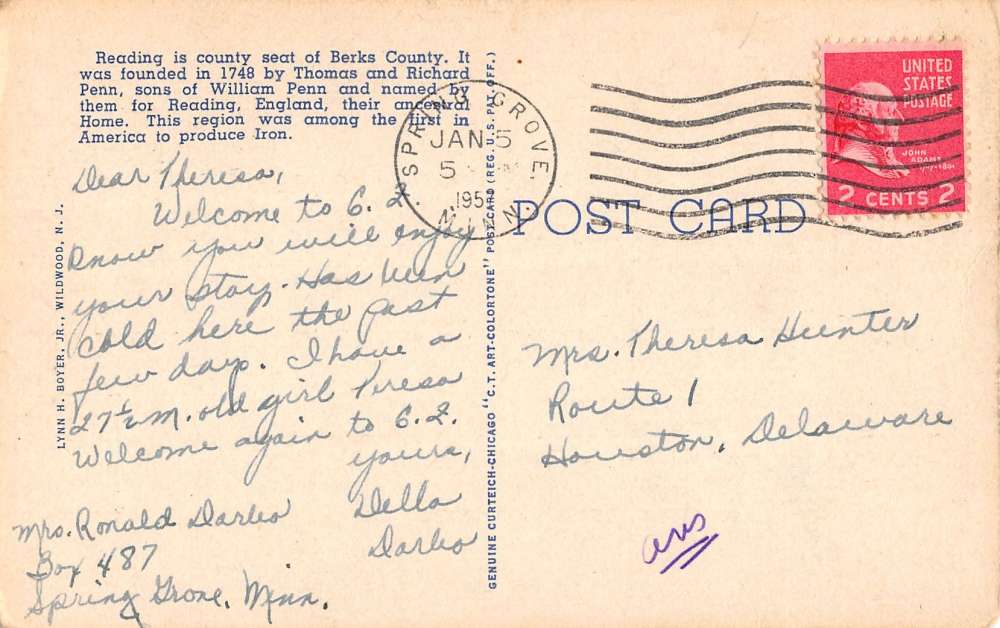 Reading is county seat of Berks County. It
was founded in 1748 by Thomas and Richard
Penn, sons of William Penn and named by
them for Reading, England, their ancestral
Home. This region was among the first in
America to produce Iron.
Dear Theresa,
Welcome to G. Z.
Know you will enjoy
your stay. Has been
cold here the past
few days. I have a
27½ m. old girl Teresa
Welcome again to G. Z.
yours,
Della
Darbo
Mrs. Ronald Darbo
Box 487
Spring Grove, Minn.
LYNN H. BOYER, JR., WILDWOOD, N. J.
GENUINE CURTEICH-CHICAGO "C.T. ART-COLORTONE" POST CARD (REG. U.S. PAT. OFF.)
SPRING GROVE,
JAN 5
5
MINN
POST CARD
UNITED
STATES
POSTAGE
JOHN
ADAMS
1797-1801
2 CENTS 2
Mrs. Theresa Hunter
Route 1
Houston, Delaware
ans